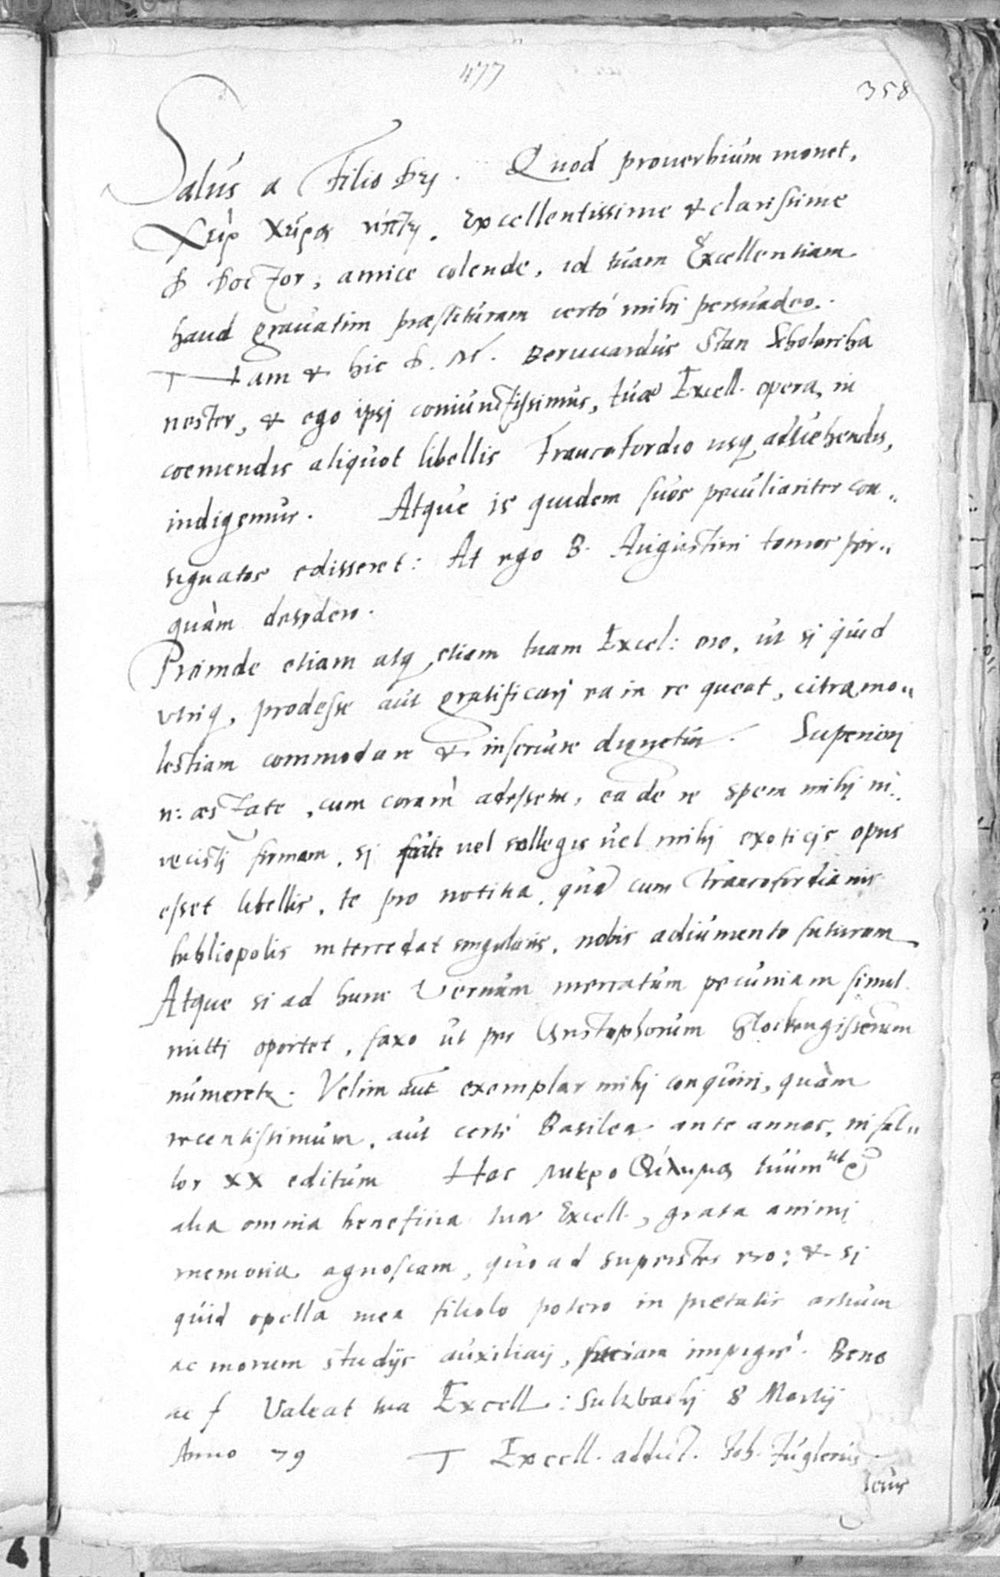 477
358
Salus a Filio Dei. Quod prouerbium monet,
Χεὶρ χεῖρα νίπτει, Excellentissime & clarissime
D Doctor, amice colende, id tuam Excellentiam
haud grauatim praestituram certò mihi persuadeo.
Nam & hic D. M. Bernardus Stan Scholarcha
noster, & ego ipsi coniunctissimus, tuae Excell. opera, in
coemendis aliquot libellis Francofordio usq aduehendis,
indigemus. Atque is quidem suos peculiariter con„
signatos edisseret: At ego B. Augustini tomos per„
quàm desydero.
Proinde etiam atq etiam tuam Excel: oro, ut si quid
utriq prodesse aut gratificari ea in re queat, citra mo„
lestiam commodare & inseruire dignetur. Superiori
n: aestate, cum coràm adessem, ea de re spem mihi in„
iecisti firmam, si vel collegis vel mihi exoticis opus
esset libellis, te pro notitia, quae cum Francofordianis
bibliopolis intercedat singularis, nobis adiumento futurum
Atque si ad hunc Vernum mercatum pecuniam simul
mitti oportet, faxo ut per Christophorum Glockengisserum
numeretr. Velim aut exemplar mihi conquiri, quàm
recentissimum, aut certè Basileae ante annos, ni fal„
lor XX editum Hoc tuum ut &
alia omnia beneficia tuae Excell., grata animi
memoria agnoscam, quoad superstes ero: & si
quid opella mea filiolo potero in pietatis artium
ac morum studijs auxiliari, faciam impigrè. Bene
ac f Valeat tua Excell: Sulzbachij 8 Martij
Anno 79 T Excell. addict. Joh. Fuglerus